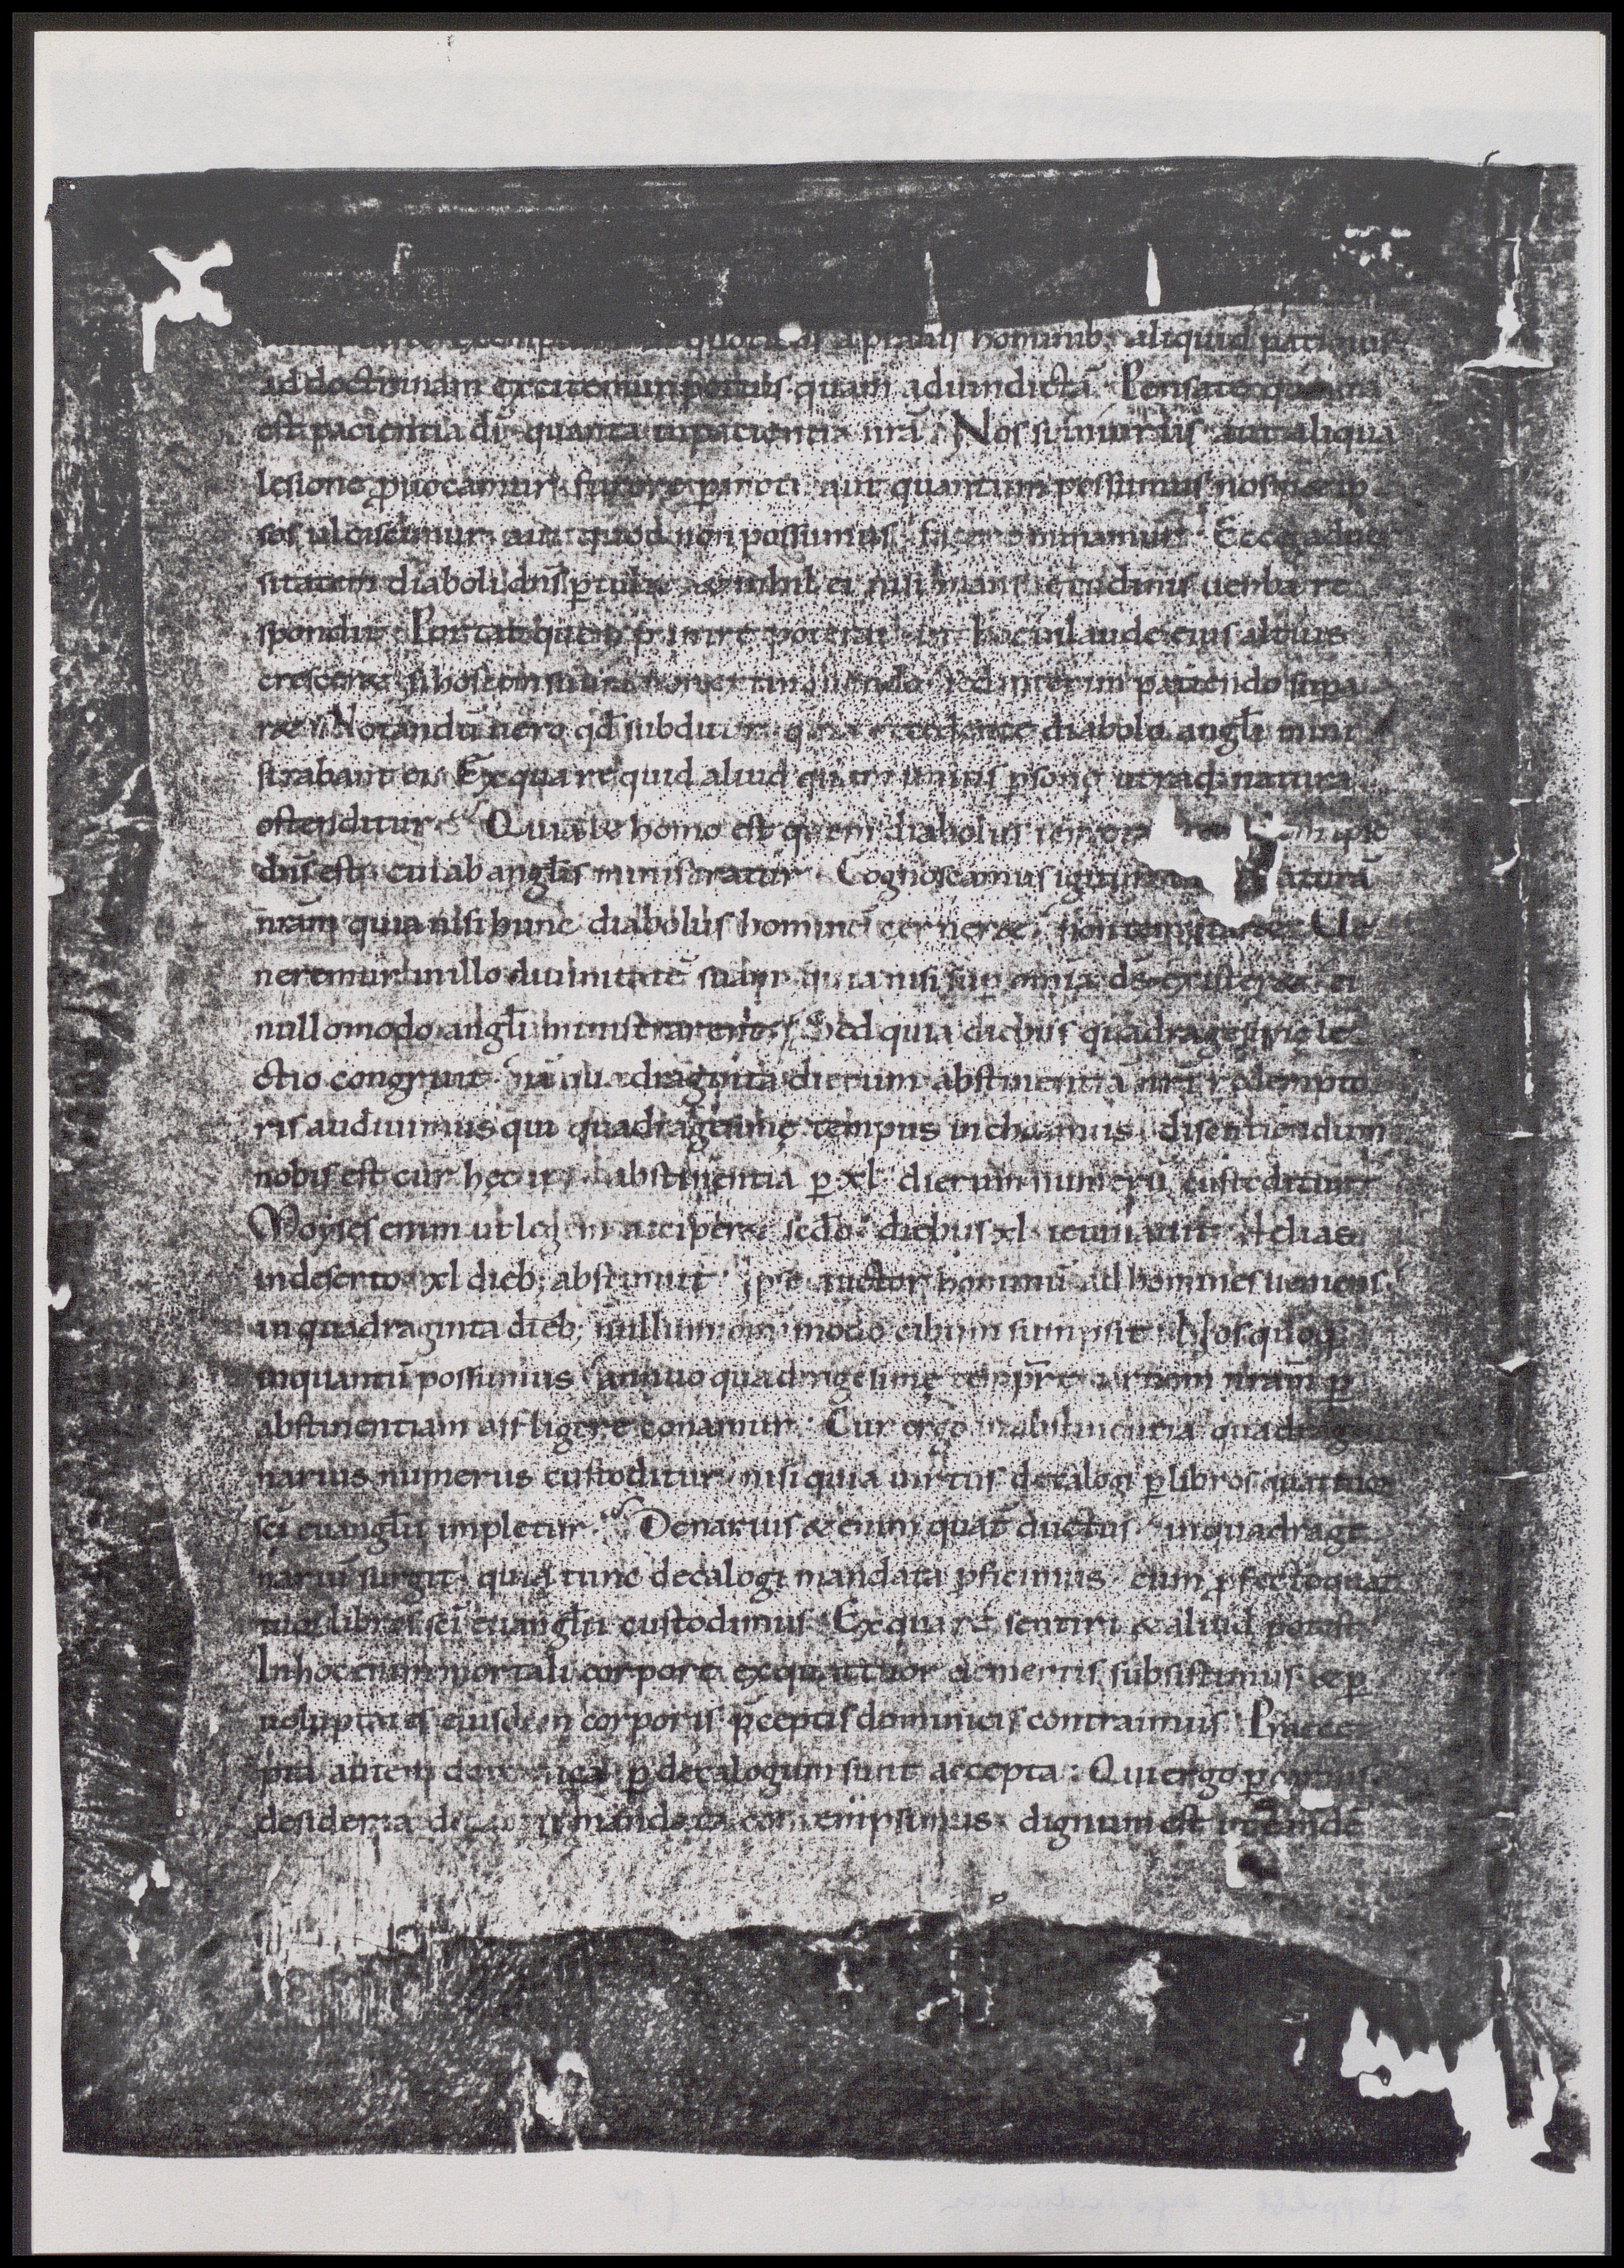 quotiens a prauis hominib; aliquid patimur
ad doctrinam excitemur potius quam aduindictā. Pensate quanta
est pacientia dī quanta inpacientia nrā. Nos si iniuriis aut aliqua
lesione ꝓuocamur furore ꝑmoti aut quantum possumus nosmet ip
sos ulciscimur aut quod non possumus facere minamur. Ecce aduer
sitatem diaboli dn̄s ꝑtulit & nihil ei nisi mansuetudinis uerba re
spondit. Portat quem punire poterat ut hoc in laude eius altius
cresceret si hostem suum non extinguendo sed interim patiendo supa
ret. Notandū uero qđ subditur quia recedente diabolo angłi mini
strabant ei. Ex qua re quid aliud quam unius psonę utraq; natura
ostenditur. Quia & homo est quem diabolus
dn̄s est cui ab angłis ministratur. Cognoscamus igitur naturā
nrām quia nisi hunc diabolus hominē cerneret non temptaret. Ue
neremur in illo diuinitatē suam quia nisi sup omnia ds̄ existeret ei
nullomodo angłi ministrarent. Sed quia diebus quadragesimę le
ctio congruit nā quadraginta dierum abstinentiā nrī redempto
ris audiuimus qui quadragesimę tempus inchoamus discutiendum
nobis est cur hęc abstinentia ꝑ xl dierum numerū custoditur.
Moyses enim ut legem acciperet scdo diebus xl ieiunauit. Helias
in deserto xl dieb; abstinuit. ipse auctor hominū ad homines ueniens
in quadraginta dieb; nullum omimodo cibum sumpsit. Nos quoq;
inquantū possumus annuo quadragesimę tempr̄e carnem nrām ꝑ
abstinentiam affligere conamur. Cur ergo in abstinentia quadrage
narius numerus custoditur nisi quia uirtus decalogi ꝑ libros quattuor
scī euangłii impletur. Denarius & enim quat ductus in quadrage
nariū surgit quia tunc decalogi mandata ꝑficimus cum ꝓfecto quat
tuor libros scī euangłii custodimus. Ex qua re sentiri & aliud potest.
In hoc enim mortali corpore ex quattuor elementis subsistimus & ꝑ
uoluptates eiusdem corporis p̄ceptis dominicis contraimus. Precep
pta autem dominica ꝑ decalogum sunt accepta. Qui ergo ꝑ carnis
desideria decalogi mandata contempsimus dignum est ut eande